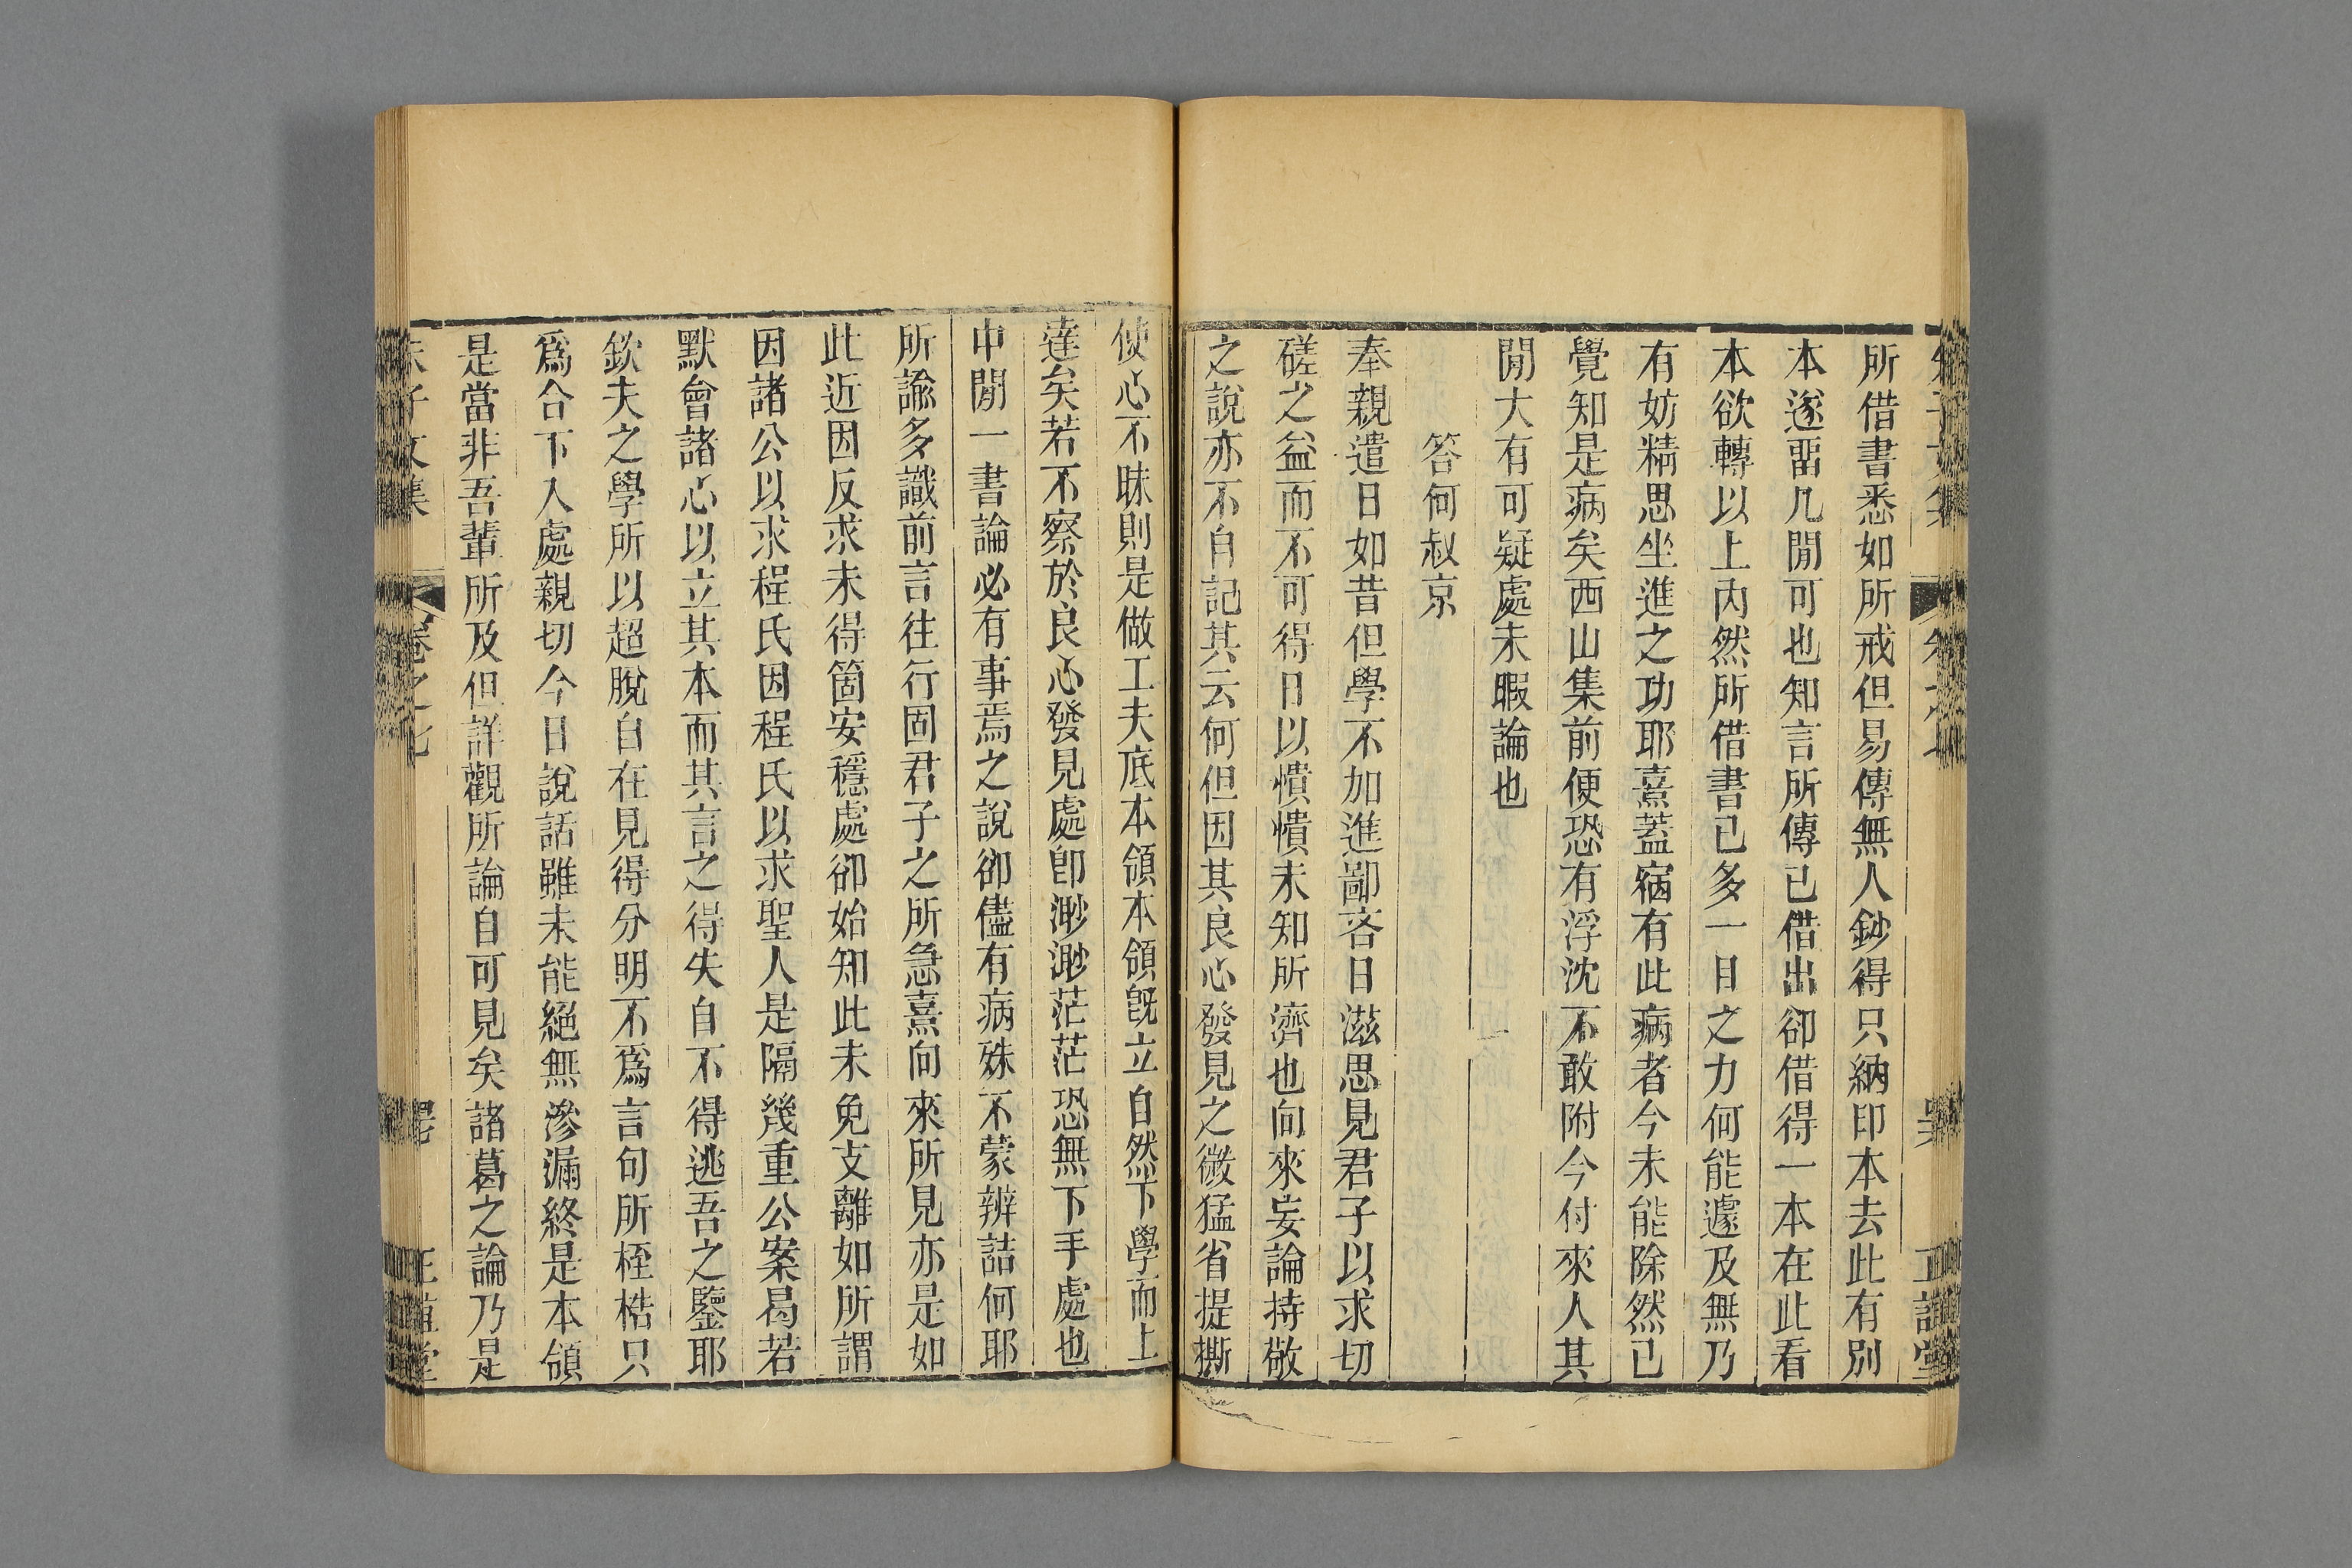 所借書悉如所戒但易傳無人鈔得只納印本去此有別
本遂畱几閒可也知言所傳已借出卻借得一本在此看
本欲轉以上內然所借書已多一日之力何能遽及無乃
有妨精思坐進之功耶熹蓋宿有此病者今未能除然已
覺知是病矣西山集前便恐有浮沈不敢附今付來人其
閒大有可疑處未暇論也
答何叔京
奉親遣日如昔但學不加進鄙吝日滋思見君子以求切
磋之益而不可得日以憒憒未知所濟也向來妄論持敬
之說亦不自記其云何但因其良心發見之微猛省提撕
使心不昧則是做工夫底本領本領旣立自然下學而上
達矣若不察於良心發見處卽渺渺茫茫恐無下手處也
中閒一書論必有事焉之說卻儘有病殊不蒙辨詰何耶
所諭多識前言往行固君子之所急熹向來所見亦是如
此近因反求未得箇安穩處卻始知此未免支離如所謂
因諸公以求程氏因程氏以求聖人是隔幾重公案曷若
默會諸心以立其本而其言之得失自不得逃吾之鑒耶
欽夫之學所以超脫自在見得分明不爲言句所桎梏只
爲合下入處親切今日說話雖未能絕無滲漏終是本領
是當非吾輩所及但詳觀所論自可見矣諸葛之論乃是
朱子文集 卷之七